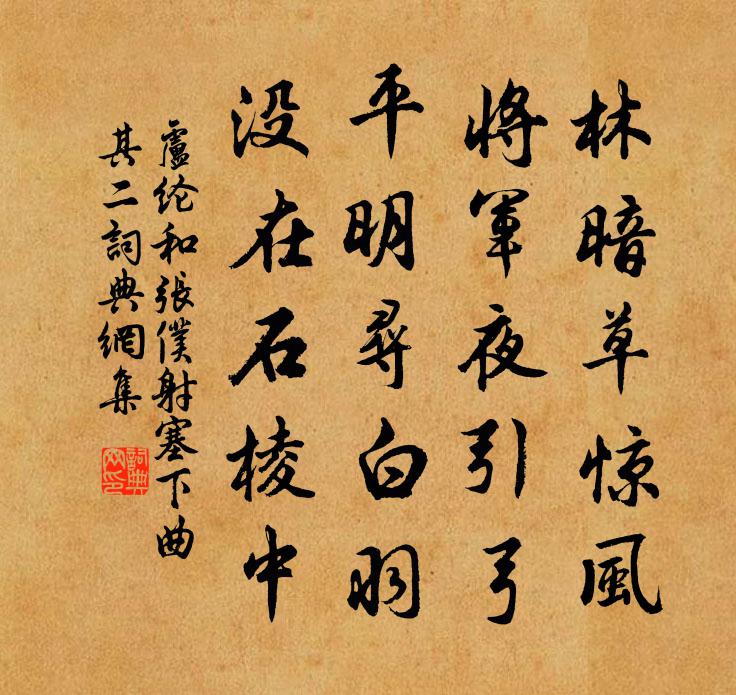 林暗草惊風
将軍夜引弓
平明尋白羽
没在石棱中
盧纶和張僕射塞下曲
其二詞典網集
詞典
网印